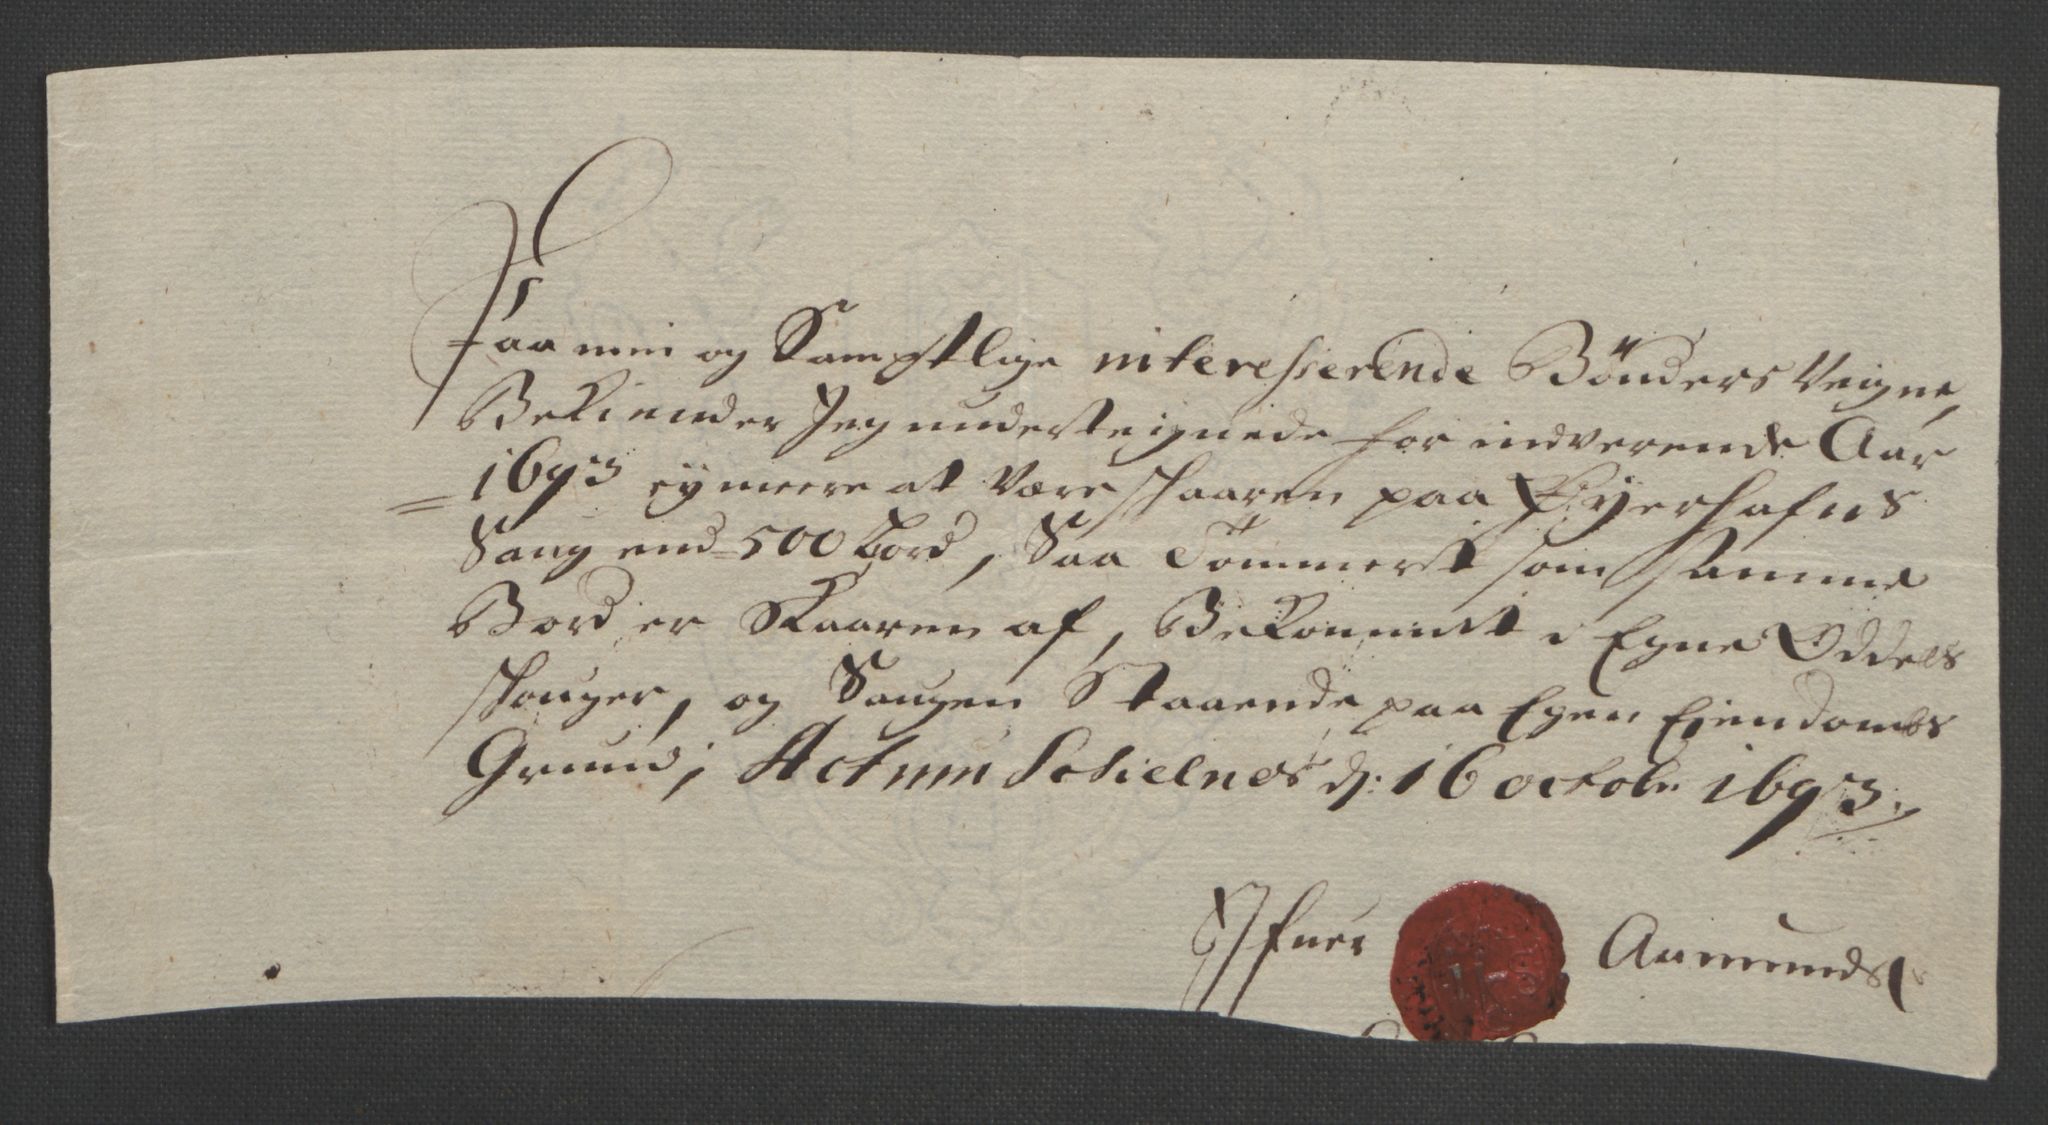 Paa min og Samptlige interesserende Bønders Veigne,
Bekiender Jeg underteignede for indverende Aar
1693 ey meere at være skaaren paa Eyerhafns
Saug end 500 bord, Saa Tømmerit som samme
Bord er Skaaren af, Bekommit i Egne Oddels
skouger, og Saugen Staaende paa Egen Eiendombs
Grund; Actum Schielnes d: 16 octobr 1693.
Asmunds